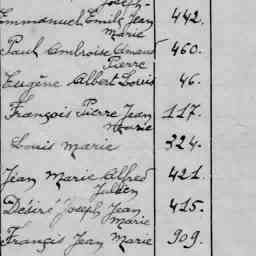 Joseph-
Emmanuel Emile Jean 442.
Marie
Paul Ambroise Amand 460.
Pierre
Eugène Albert Louis 46.
François Pierre Jean 117.
Marie
Louis Marie 324.
Jean Marie Alfred 421.
Julien
Désiré Joseph Jean 415.
Marie
Francis Jean Marie 909.